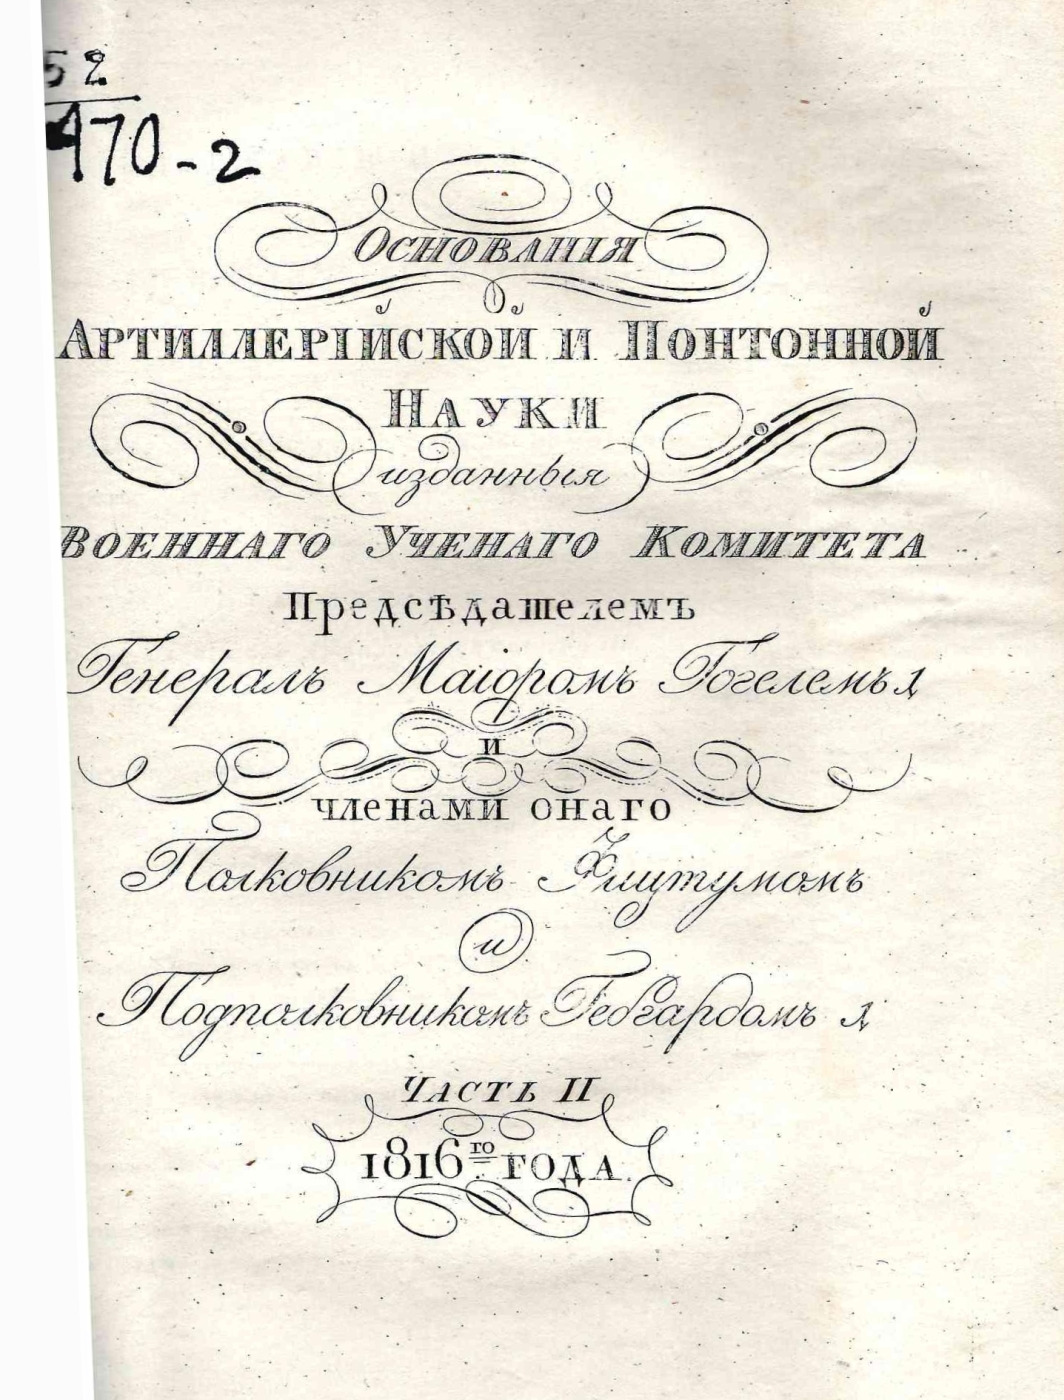 52
170-2
Основанія
Артиллерійской и Понтонной
Науки
изданныя
Военнаго Ученаго Комитета
Предсѣдателемъ
Генералъ Маіоромъ Гогелемъ 1
и
членами онаго
Полковникомъ Фицтумомъ
и
Подполковникомъ Гебгардомъ 1
Часть II
1816го года.